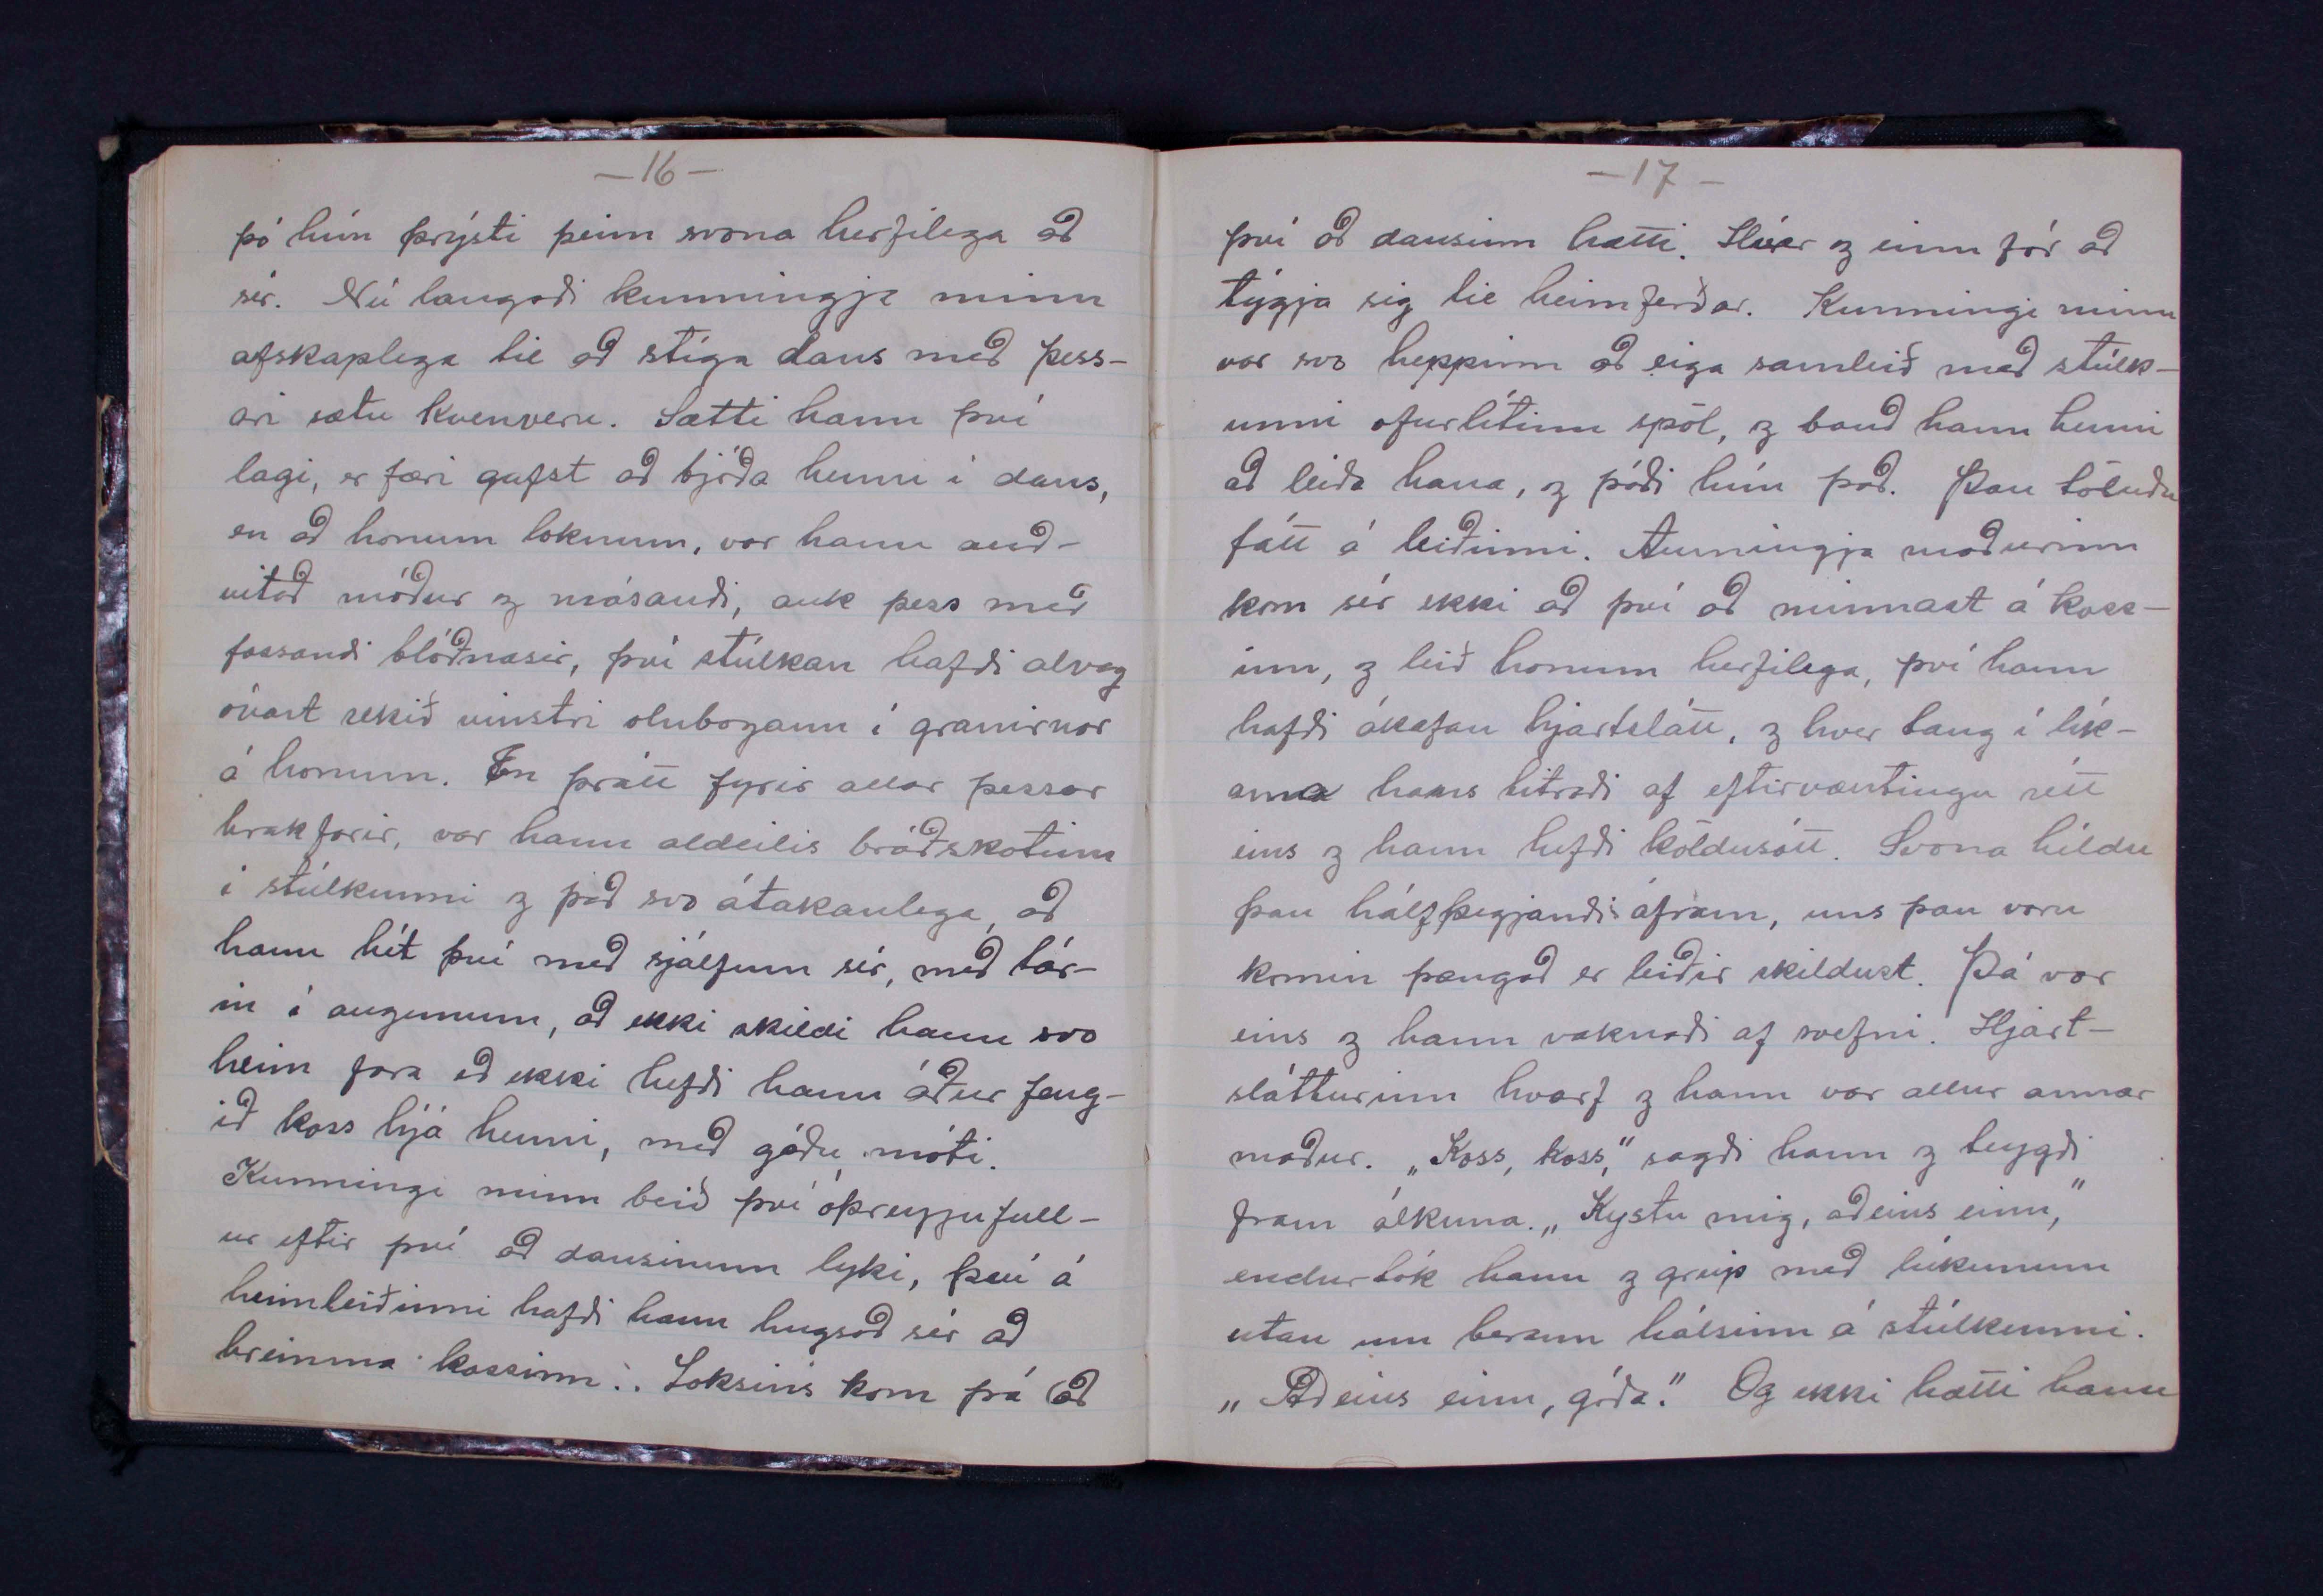 -16-
þó hún þrýsti þeim svona herfilega að
sér. Nú langaði kunningja minn
afskaplega til að stíga dans með þess-
ari sætu kvenveru. Sætti hann því
lagi, er færi gafst að bjóða henni í dans,
en að honum loknum, var hann auð-
vitað móður og másandi, auk þess með
fossandi blóðnasir, því stúlkan hafði alveg
óvart rekið vinstri olnbogann í granirnar
á honum. En þrátt fyrir allar þessar
hrakfarir, var hann aldeilis bráðskotinn
í stúlkunni og það svo átakanlega, að
hann hét því með sjálfum sér, með tár-
in í augunum, að ekki skildi hann svo
heim fara að ekki hefði hann áður feng-
ið koss hjá henni, með góðu móti.
Kunningi minn beið því óþreyjufull-
ur eftir því að dansinum lyki, því á
heimleiðinni hafði hann hugsað sér að
hremma kossinn... Loksins kom þá að
-17-
því að dansinn hætti. Hver og einn fór að
týgja sig til heimferðar. Kunningi minn
var svo heppinn að eiga samleið með stúlk-
unni ofurlítinn spöl, og bauð hann henni
að leiða hana, og þáði hún það. Þau töluðu
fátt á leiðinni. Aumingja maðurinn
kom sér ekki að því að minnast á koss-
inn, og leið honum herfilega, því hann
hafði ákafan hjartslátt, og hver taug í lík-
ama hans titraði af eftirvæntingu rétt
eins og hann hefði köldusótt. Svona héldu
þau hálfþegjandi áfram, uns þau voru
komin þangað er leiðir skildust. Þá var
eins og hann vaknaði af svefni. Hjart-
slátturinn hvarf og hann var allur annar
maður. „Koss, koss,“ sagði hann og teygði
fram álkuna. „Kystu mig, aðeins einn,“
endurtók hann og greip með lúkunum
utan um beran hálsinn á stúlkunni.
„Aðeins einn, góða.“ Og ekki hætti hann